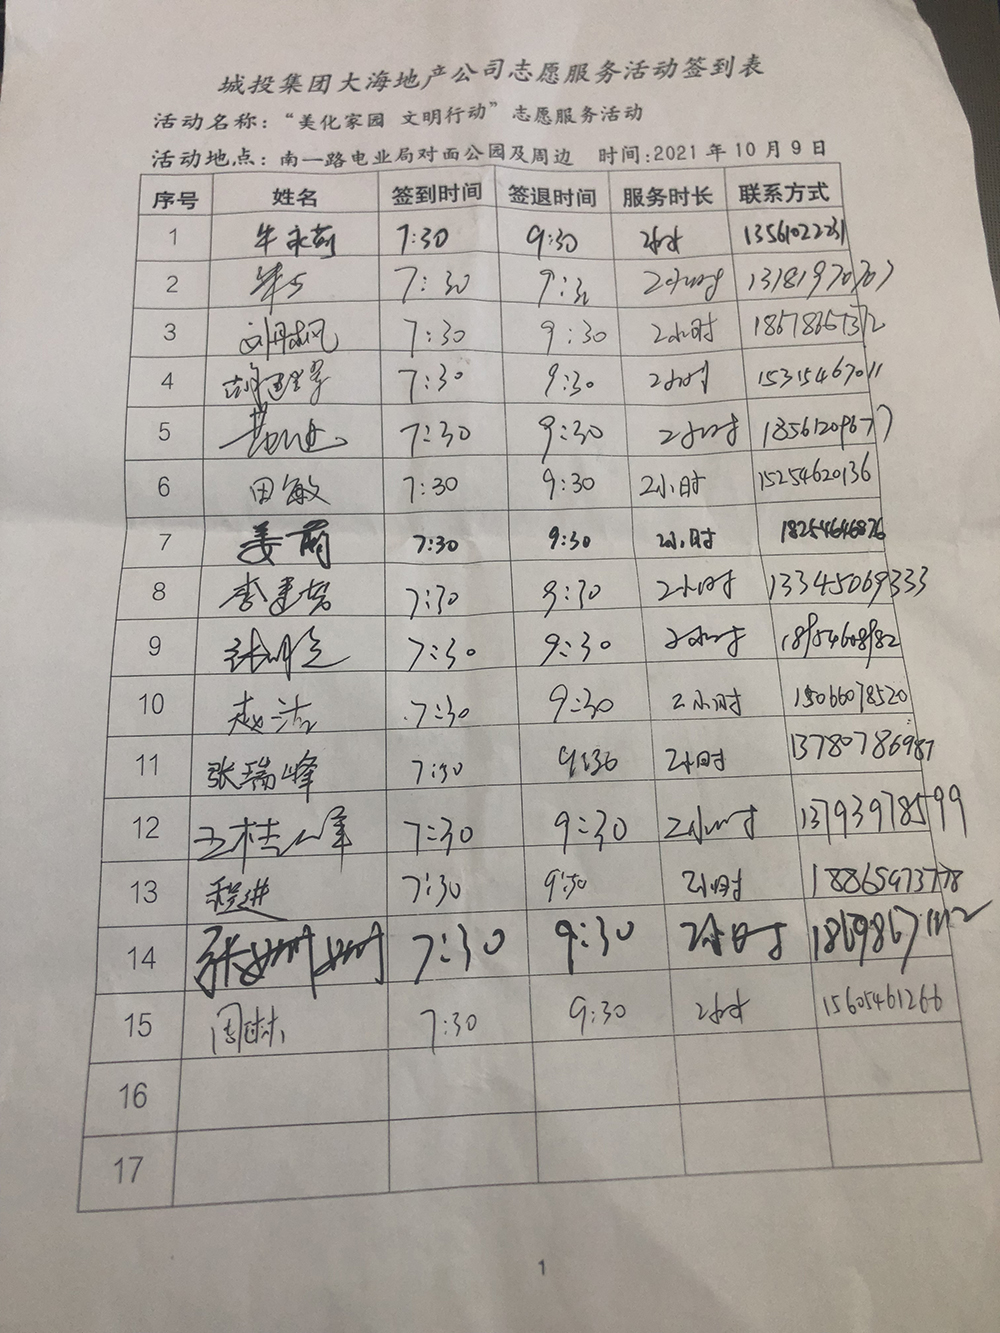 城投集团大海地产公司志愿服务活动签到表
活动名称：“美化家园 文明行动”志愿服务活动
活动地点：南一路电业局对面公园及周边 时间:2021年10月9日
序号 姓名 签到时间 签退时间 服务时长 联系方式
1 7:30 9:30 2小时 13561022231
2 7:30 9:30 2小时 13181970707
3 刘丹枫 7:30 9:30 2小时
4 7:30 9:30 2小时 15315467011
5 7:30 9:30 2小时 18561209677
6 田敏 7:30 9:30 2小时 15254620136
7 姜萌 7:30 9:30 2小时 18254646876
8 7:30 9:30 2小时 13345069333
9 7:30 9:30 2小时 18954608982
10 赵洁 7:30 9:30 2小时 15066078520
11 张瑞峰 7:30 9:30 2小时 13780786987
12 王桂峰 7:30 9:30 2小时 13793978599
13 程进 7:30 9:30 2小时
14 张姗姗 7:30 9:30 2小时
15 周琳 7:30 9:30 2小时 15605461266
16
17
1